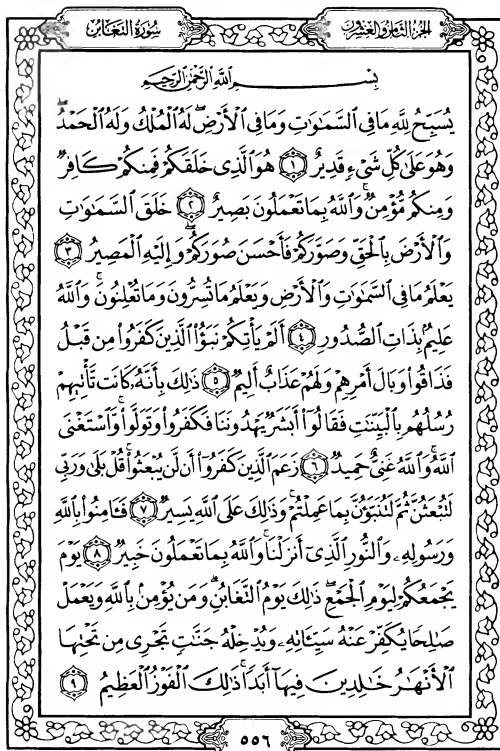 الجزء الثامن والعشرون
سورة التغابن
بِسْمِ اللَّهِ الرَّحْمَٰنِ الرَّحِيمِ
يُسَبِّحُ لِلَّهِ مَا فِي السَّمَٰوَٰتِ وَمَا فِي الْأَرْضِ ۖ لَهُ الْمُلْكُ وَلَهُ الْحَمْدُ ۖ
وَهُوَ عَلَىٰ كُلِّ شَيْءٍ قَدِيرٌ ١ هُوَ الَّذِي خَلَقَكُمْ فَمِنكُمْ كَافِرٌ
وَمِنكُم مُّؤْمِنٌ ۚ وَاللَّهُ بِمَا تَعْمَلُونَ بَصِيرٌ ٢ خَلَقَ السَّمَٰوَٰتِ
وَالْأَرْضَ بِالْحَقِّ وَصَوَّرَكُمْ فَأَحْسَنَ صُوَرَكُمْ ۖ وَإِلَيْهِ الْمَصِيرُ ٣
يَعْلَمُ مَا فِي السَّمَٰوَٰتِ وَالْأَرْضِ وَيَعْلَمُ مَا تُسِرُّونَ وَمَا تُعْلِنُونَ ۚ وَاللَّهُ
عَلِيمٌ بِذَاتِ الصُّدُورِ ٤ أَلَمْ يَأْتِكُمْ نَبَؤُا الَّذِينَ كَفَرُوا مِن قَبْلُ
فَذَاقُوا وَبَالَ أَمْرِهِمْ وَلَهُمْ عَذَابٌ أَلِيمٌ ٥ ذَٰلِكَ بِأَنَّهُ كَانَت تَّأْتِيهِمْ
رُسُلُهُم بِالْبَيِّنَٰتِ فَقَالُوا أَبَشَرٌ يَهْدُونَنَا فَكَفَرُوا وَتَوَلَّوا ۚ وَّاسْتَغْنَى
اللَّهُ ۚ وَاللَّهُ غَنِيٌّ حَمِيدٌ ٦ زَعَمَ الَّذِينَ كَفَرُوا أَن لَّن يُبْعَثُوا ۚ قُلْ بَلَىٰ وَرَبِّي
لَتُبْعَثُنَّ ثُمَّ لَتُنَبَّؤُنَّ بِمَا عَمِلْتُمْ ۚ وَذَٰلِكَ عَلَى اللَّهِ يَسِيرٌ ٧ فَـَٔامِنُوا بِاللَّهِ
وَرَسُولِهِ وَالنُّورِ الَّذِي أَنزَلْنَا ۚ وَاللَّهُ بِمَا تَعْمَلُونَ خَبِيرٌ ٨ يَوْمَ
يَجْمَعُكُمْ لِيَوْمِ الْجَمْعِ ۖ ذَٰلِكَ يَوْمُ التَّغَابُنِ ۗ وَمَن يُؤْمِنۢ بِاللَّهِ وَيَعْمَلْ
صَٰلِحًا يُكَفِّرْ عَنْهُ سَيِّـَٔاتِهِ وَيُدْخِلْهُ جَنَّٰتٍ تَجْرِي مِن تَحْتِهَا
الْأَنْهَٰرُ خَٰلِدِينَ فِيهَا أَبَدًا ۚ ذَٰلِكَ الْفَوْزُ الْعَظِيمُ ٩
٥٥٦